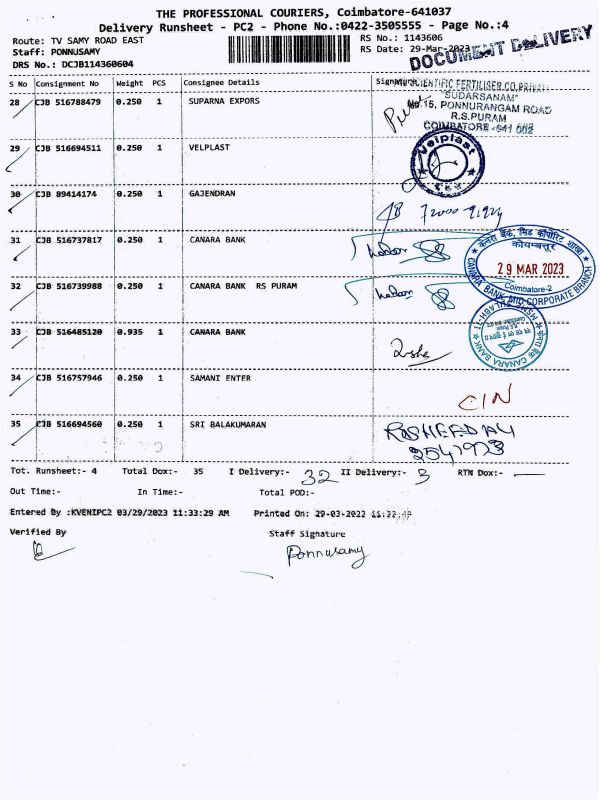 THE PROFESSIONAL COURIERS, Coimbatore-641037
Delivery Runsheet - PC2 - Phone No.:0422-3505555 - Page No.:4
Route: TV SAMY ROAD EAST RS No.: 1143606
Staff: PONNUSAMY RS Date: 29-Mar-2023
DOCUMENT DELIVERY
DRS No.: DCJB114360604
S No Consignment No Weight PCS Consignee Details Signature
SCIENTIFIC FERTILISER CO.PRIVATE
28 CJB 516788479 0.250 1 SUPARNA EXPORS
"SUDARSANAM"
No.15, PONNURANGAM ROAD
R.S.PURAM
COIMBATORE -641 002
29 CJB 516694511 0.250 1 VELPLAST
Velplast
30 CJB 89414174 0.250 1 GAJENDRAN
31 CJB 516737817 0.250 1 CANARA BANK
केनरा बैंक, मिड कॉर्पोरेट शाखा
कोयम्बत्तूर
29 MAR 2023
Coimbatore-2
CANARA BANK, MID CORPORATE BRANCH
32 CJB 516739988 0.250 1 CANARA BANK RS PURAM
33 CJB 516485120 0.935 1 CANARA BANK
CANARA BANK
34 CJB 516757946 0.250 1 SAMANI ENTER
CIN
35 CJB 516694560 0.250 1 SRI BALAKUMARAN
Tot. Runsheet:- 4 Total Dox:- 35 I Delivery:- 32 II Delivery:- 3 RTN Dox:- —
Out Time:- In Time:- Total POD:-
Entered By :KVENIPC2 03/29/2023 11:33:29 AM Printed On: 29-03-2023
Verified By Staff Signature
Ponnusamy